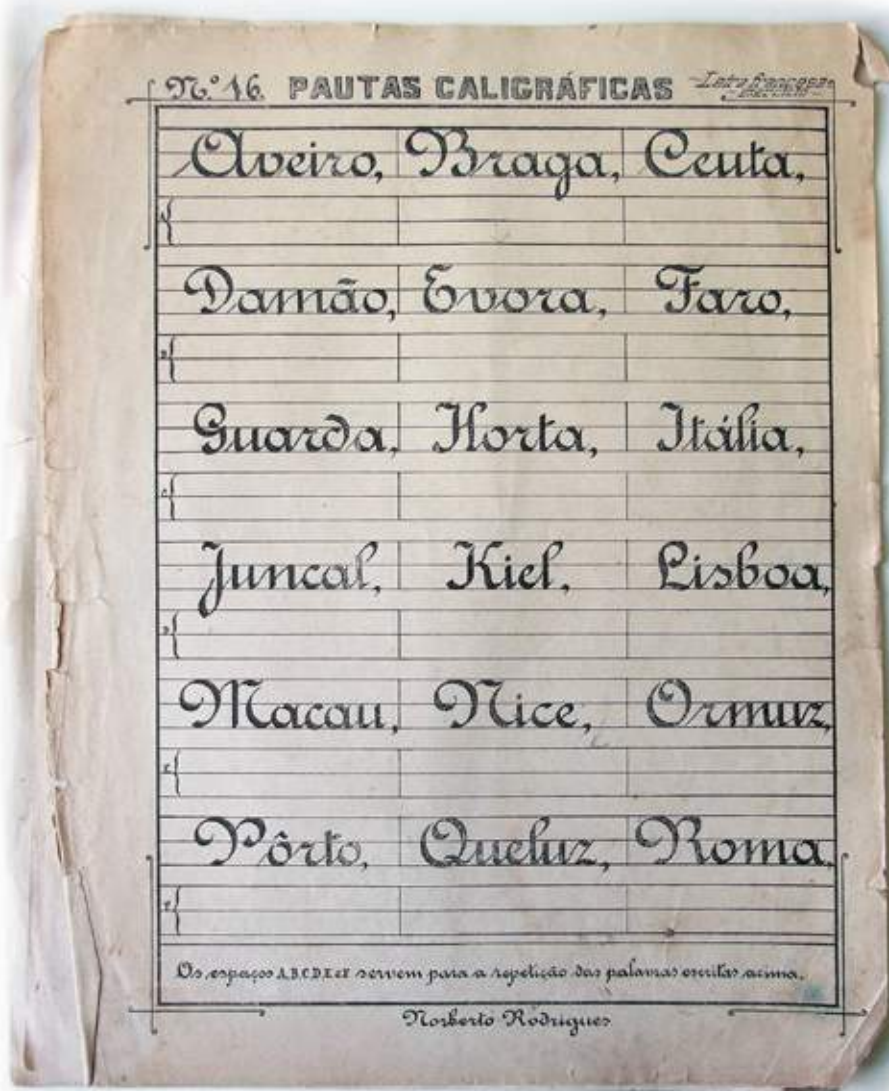 N.º 16. PAUTAS CALIGRÁFICAS Letra francesa
Aveiro, Braga, Ceuta,
A
Damão, Evora, Faro,
B
Guarda, Horta, Itália,
C
Juncal, Kiel, Lisboa,
D
Macau, Nice, Ormuz,
E
Pôrto, Queluz, Roma,
F
Os espaços A,B,C,D,E e F servem para a repetição das palavras escritas acima.
Norberto Rodrigues